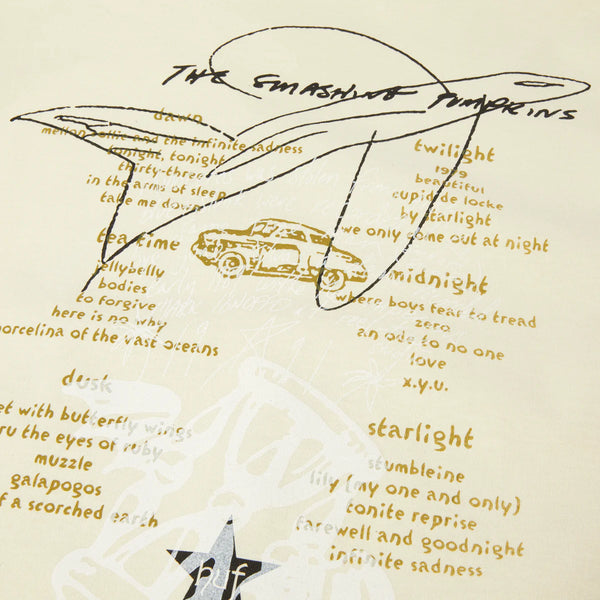 THE SMASHING PUMPKINS
dawn
mellon collie and the infinite sadness
tonight, tonight
thirty-three
in the arms of sleep
take me down
tea time
jellybelly
bodies
to forgive
here is no why
porcelina of the vast oceans
dusk
with butterfly wings
the eyes of ruby
muzzle
galapogos
of a scorched earth
twilight
1979
beautiful
cupid de locke
by starlight
we only come out at night
midnight
where boys fear to tread
zero
an ode to no one
love
x.y.u.
starlight
stumbleine
lily (my one and only)
tonite reprise
farewell and goodnight
infinite sadness
huf